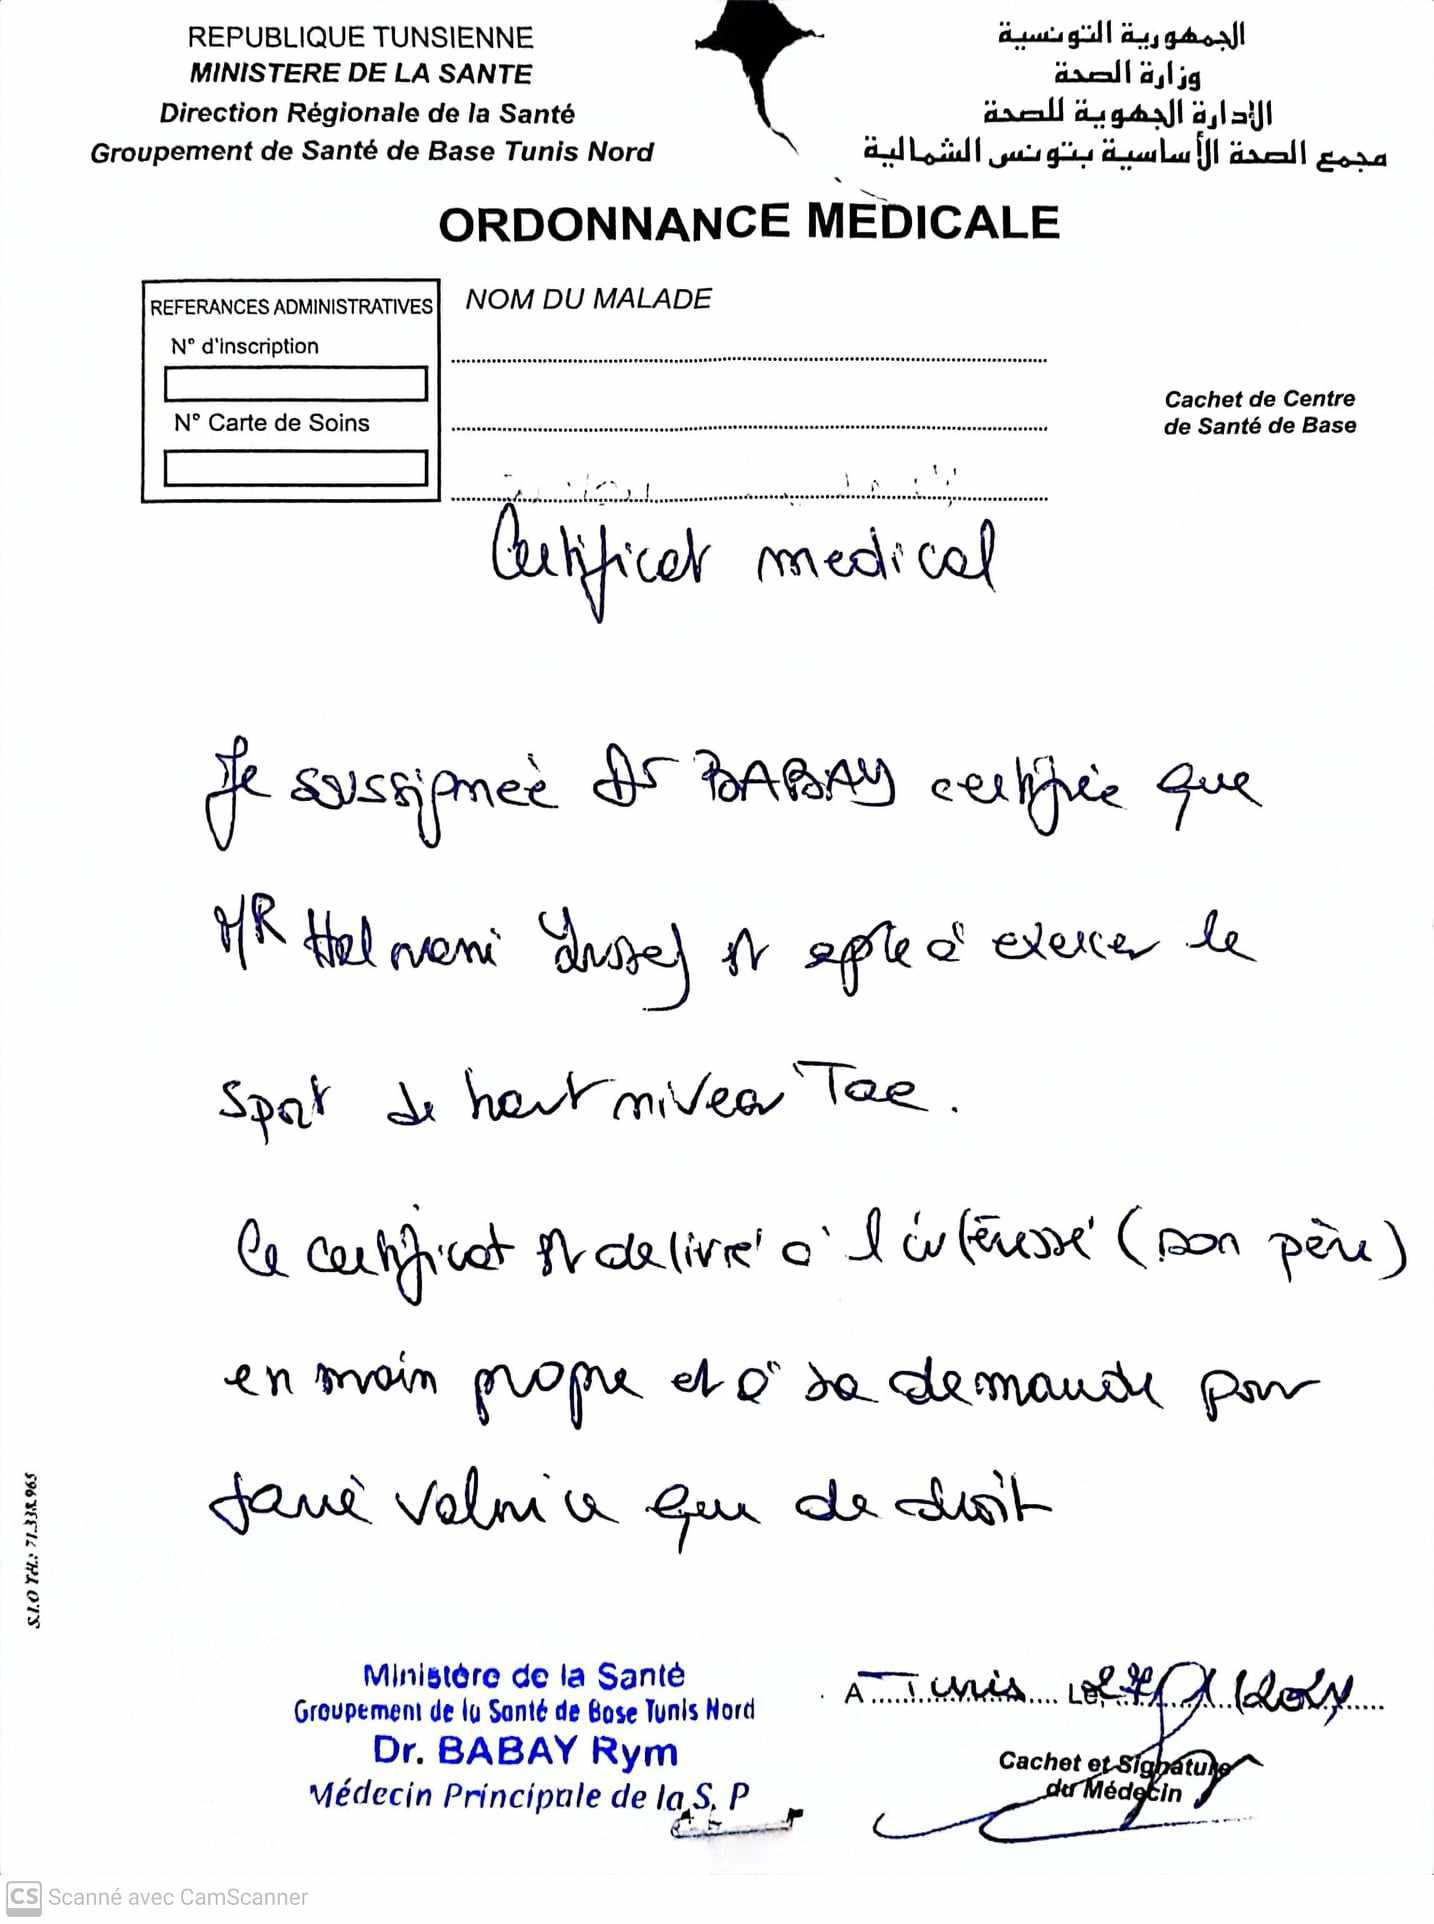 REPUBLIQUE TUNSIENNE
MINISTERE DE LA SANTE
Direction Régionale de la Santé
Groupement de Santé de Base Tunis Nord
الجمهورية التونسية
وزارة الصحة
الإدارة الجهوية للصحة
مجمع الصحة الأساسية بتونس الشمالية
ORDONNANCE MEDICALE
REFERANCES ADMINISTRATIVES
N° d'inscription
N° Carte de Soins
NOM DU MALADE
Cachet de Centre
de Santé de Base
Certificat medical
Je soussignée Dr BABAY certifiée que
MR Helmani est apte à exercer le
sport de haut niveau
Ce certificat est delivré à l'intéressé (son père)
en main propre et à sa demande pour
que de droit
S.I.O TH.: 71.338.965
Ministère de la Santé
Groupement de la Santé de Base Tunis Nord
Dr. BABAY Rym
Médecin Principale de la S. P
A Tunis Le
Cachet et Signature
du Médecin
CS Scanné avec CamScanner